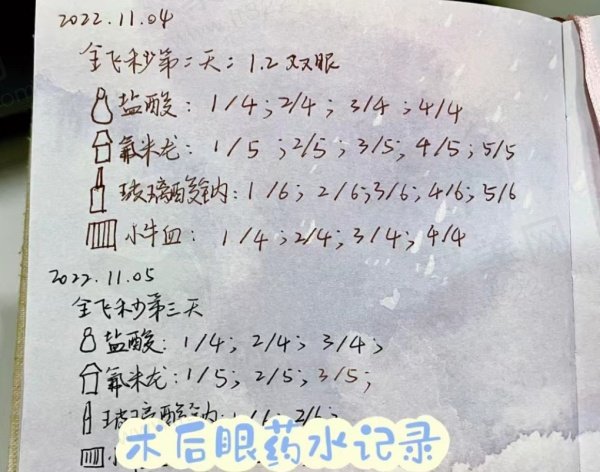 2022.11.04
全飞秒第二天：1.2双眼
盐酸：1/4；2/4；3/4；4/4
氟米龙：1/5；2/5；3/5，4/5；5/5
玻璃酸钠：1/6；2/6；3/6；4/6；5/6
小牛血：1/4；2/4；3/4；4/4
2022.11.05
全飞秒第三天
盐酸：1/4；2/4；3/4；
氟米龙：1/5；2/5；3/5；
玻璃酸钠：1/6；2/6；
小
术后眼药水记录